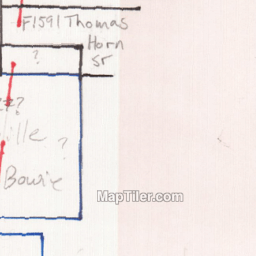 F1591 Thomas
Horn
st
?
?
ille ?
Bowie
MapTiler.com